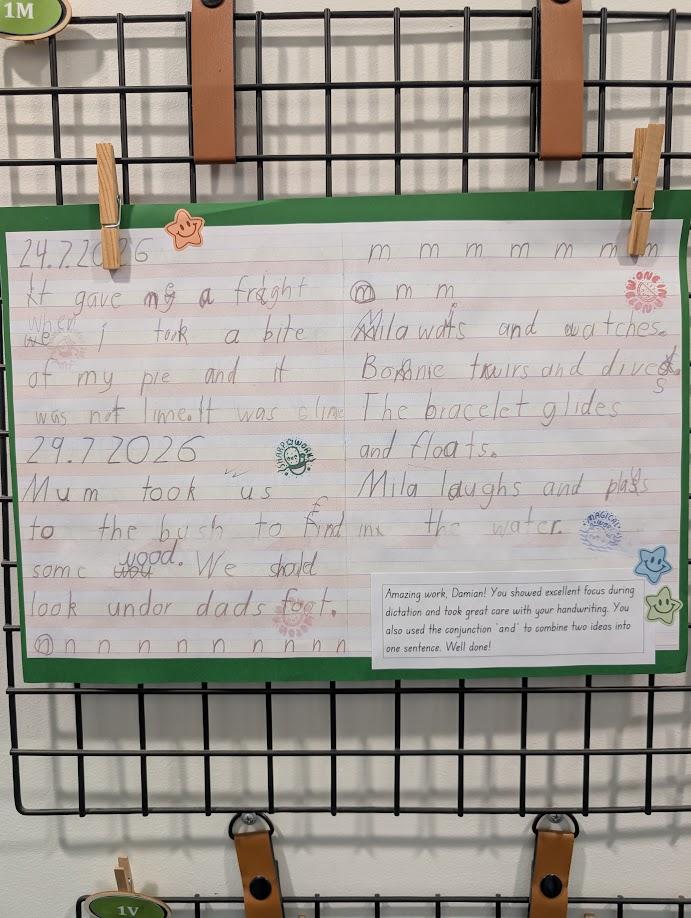 1M
24.7.2026
It gave me a fright
when
we i took a bite
of my pie and it
was not lime.It was slime
29.7.2026
SHARP WORK!
Mum took us
to the bush to find
some wood. We shold
look undor dads foot.
n n n n n n n n n
m m m m m m m
m m m
Mila waits and watches.
Bonnie twirs and dives.
The bracelet glides
and floats.
Mila laughs and plays
in the water.
MAGICAL WORK
Amazing work, Damian! You showed excellent focus during
dictation and took great care with your handwriting. You
also used the conjunction 'and' to combine two ideas into
one sentence. Well done!
1V